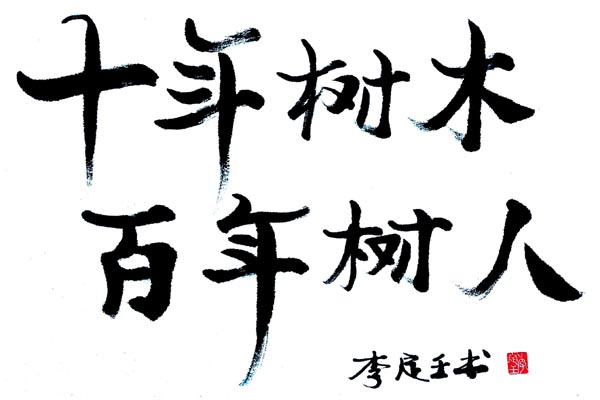 十年树木
百年树人
李定壬书